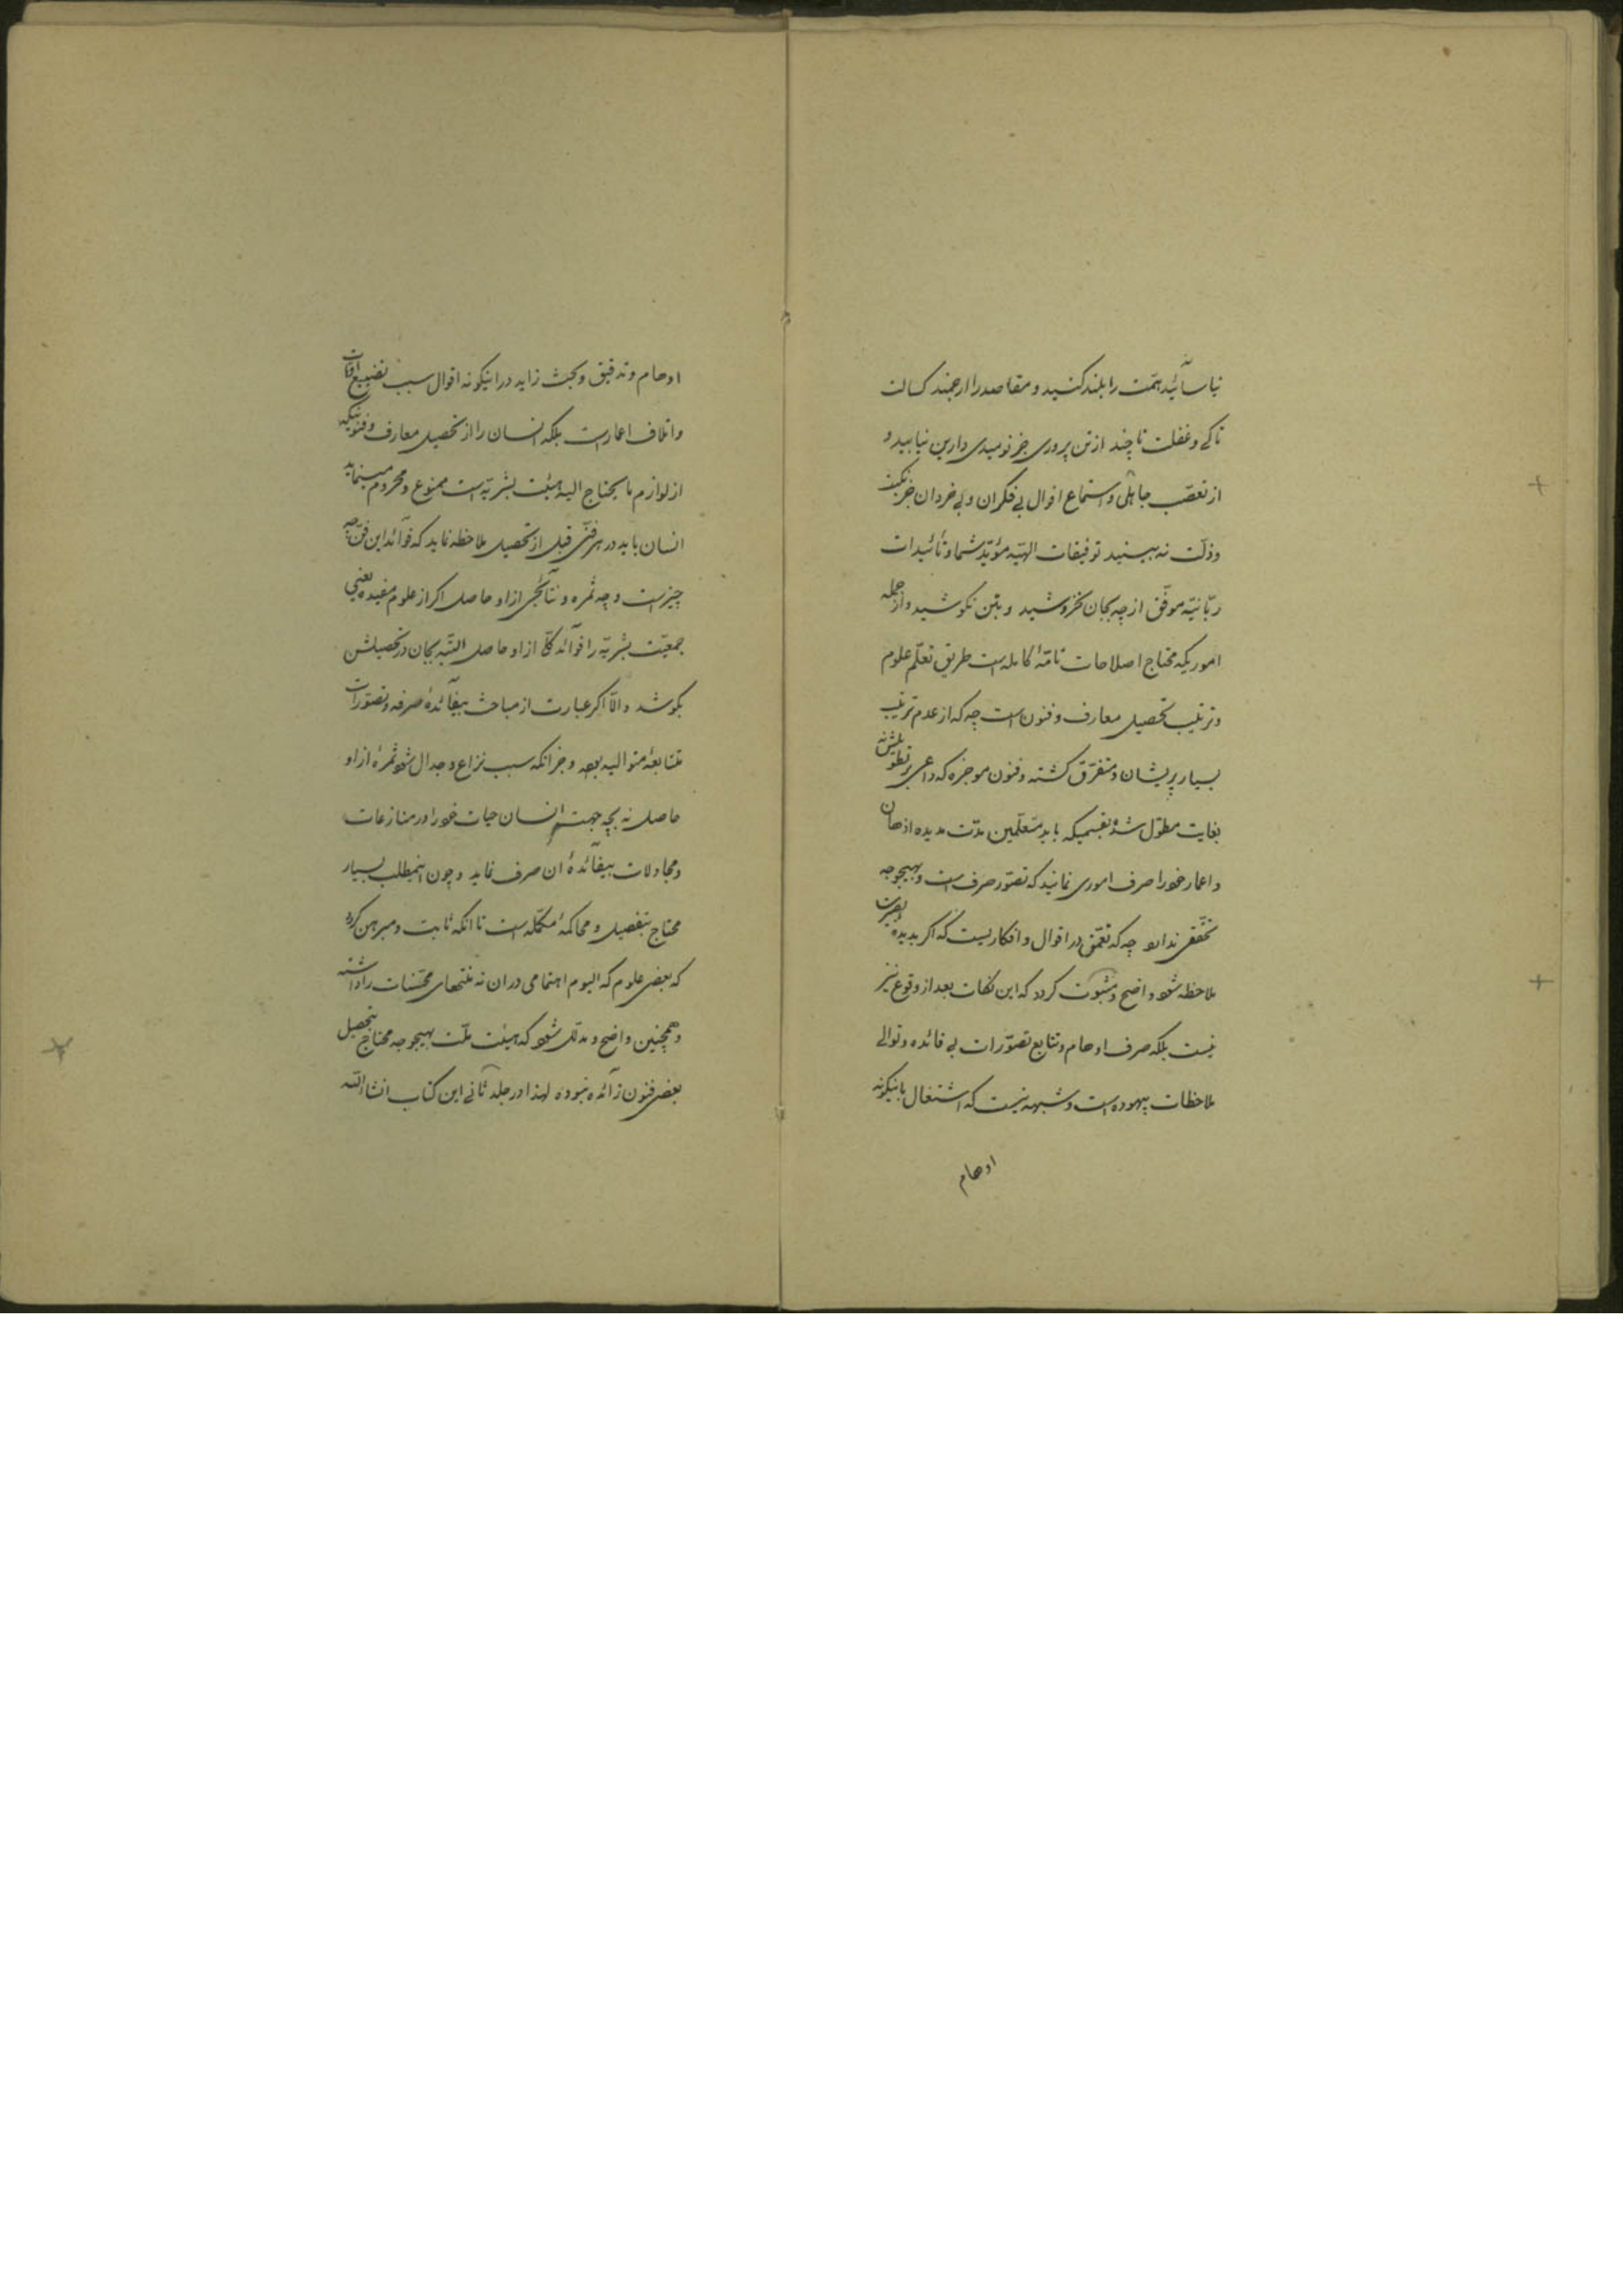 نیاسائید همّت را بلند کنید و مقاصد را ارجمند کسالت
تا کی و غفلت تا چند از تن پروری جز نومیدی دارین نیابید و
از تعصّب جاهلی و استماع اقوال بی فکران و بی خردان جز نکبت
و ذلّت نه بینید توفیقات الهیّه مؤیّد شما و تأئیدات
ربّانیّه موفّق از چه بجان نخروشید و بتن نکوشید و از جمله
اموریکه محتاج اصلاحات تامّۀ کامله است طریق تعلّم علوم
و ترتیب تحصیل معارف و فنون است چه که از عدم ترتیب
بسیار پریشان و متفرّق گشته و فنون موجزه که داعی بر تطویلش نه
بغایت مطوّل شده بقسمیکه باید متعلّمین مدّت مدیده اذهان
و اعمار خود را صرف اموری نمایند که تصوّر صرف است و بهیچوجه
تحقّقی ندارد چه که تعمّق در اقوال و افکاریست که اگر بدیدۀ بصیرت
ملاحظه شود واضح و مثبوت کردد که این نکات بعد از وقوع نیز
نیست بلکه صرف اوهام و تتابع تصوّرات بی فائده و توالی
ملاحظات بیهوده است و شبهه نیست که اشتغال باینگونه
اوهام
اوهام و تدقیق و بحث زاید در اینگونه اقوال سبب تضییع اوقات
و اتلاف اعمار است بلکه انسان را از تحصیل معارف و فنونیکه
از لوازم ما یحتاج الیه هیئت بشریّه است ممنوع و محروم مینماید
انسان باید در هر فنّی قبل از تحصیل ملاحظه نماید که فوآئد این فنّ چه
چیز است و چه ثمره و نتآئجی از او حاصل اکر از علوم مفیده یعنی
جمعیّت بشریّه را فوآئد کلّی از او حاصل البتّه بجان در تحصیلش
بکوشد و الّا اکر عبارت از مباحث بیفآئدۀ صرفه و تصوّرات
متتابعۀ متوالیه بوده و جز انکه سبب نزاع و جدال شود ثمرۀ از او
حاصل نه بچه جهت انسان حیات خود را در منازعات
و مجادلات بیفآئدۀ ان صرف نماید و چون اینمطلب بسیار
محتاج بتفصیل و محاکمۀ مکمّله است تا انکه ثابت و مبرهن کردد
که بعضی علوم که الیوم اهتمامی در ان نه منتهای محسّنات را داشته
و همچنین واضح و مدلّل شود که هیئت ملّت بهیچوجه محتاج بتحصیل
بعضی فنون زآئده نبوده لهذا در جلد ثانی این کتاب انشاءاللّه